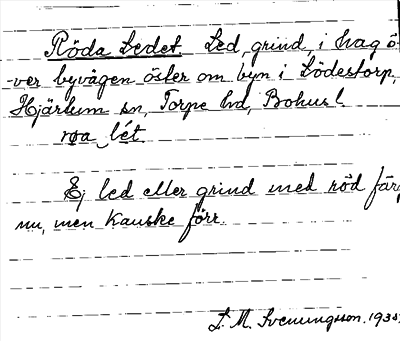 Röda Ledet. Led, grind, i hag ö-
-ver byvägen öster om byn i Södestorp,
Hjärtum sn, Torpe hd, Bohusl
røa lét.
Ej led eller grind med röd färg
nu, men kanske förr.
S. M. Svenungsson. 1935.